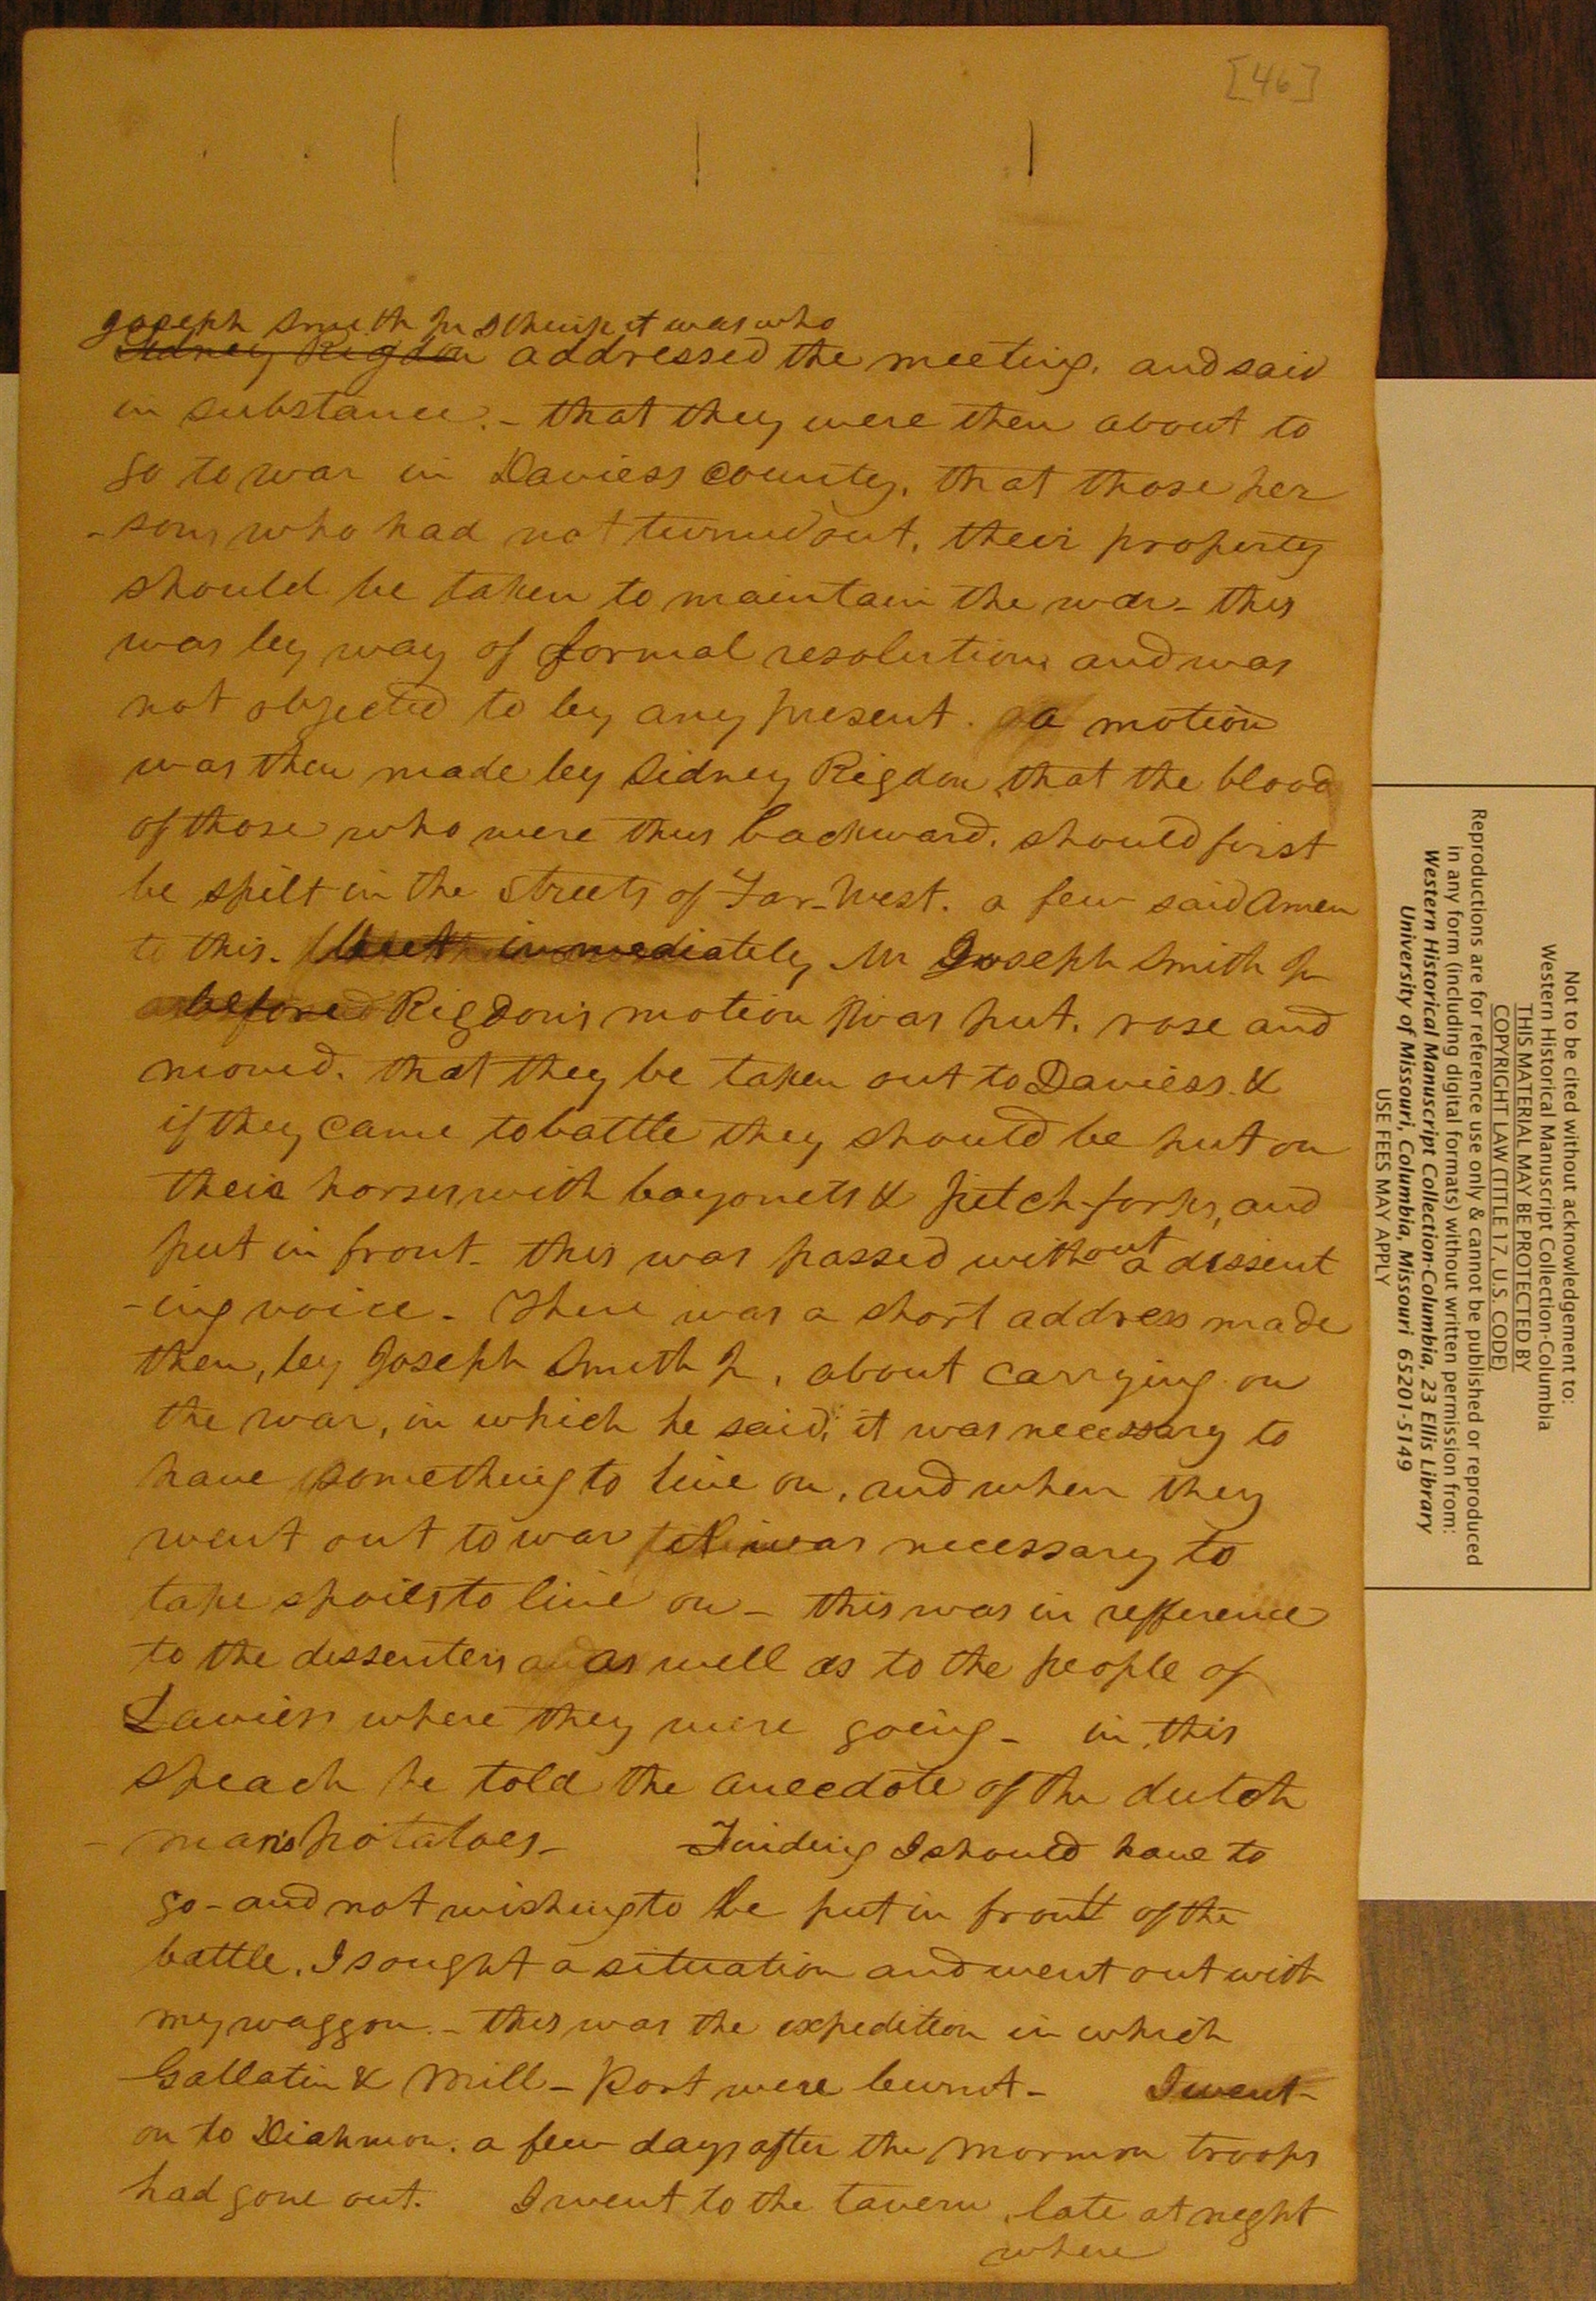 [46]
Joseph Smith Jr I think it was who
Sidney Rigdon addressed the meeting, and said
in substance. - that they were then about to
go to war in Daviess County, that those per
-sons who had not turned out, their property
should be taken to maintain the war - this
was by way of formal resolution and was
not objected to by any present. a motion
was then made by Sidney Rigdon, that the blood
of those who were thus backward, should first
be spilt in the streets of Far-West. a few said Amen
to this. but immediately Mr Joseph Smith Jr
before Rigdon's motion was put, rose and
moved, that they be taken out to Daviess &
if they came to battle they should be put on
their horses with bayonets & pitch-forks, and
put in front - this was passed without a dissent
-ing voice - There was a short address made
then, by Joseph Smith Jr, about carrying on
the war, in which he said, it was necessary to
have something to live on, and when they
went out to war it was necessary to
take spoils to live on - this was in refference
to the dissenters as well as to the people of
Daviess where they were going - in this
speach he told the anecdote of the dutch
- man's potatoes - Finding I should have to
go - and not wishing to be put in front of the
battle, I sought a situation and went out with
my waggon. - this was the expedition in which
Gallatin & Mill-Port were burnt - I went
on to Diahmon. a few days after the Mormon troops
had gone out. I went to the tavern, late at night
where
Not to be cited without acknowledgement to:
Western Historical Manuscript Collection-Columbia
THIS MATERIAL MAY BE PROTECTED BY
COPYRIGHT LAW (TITLE 17, U.S. CODE)
Reproductions are for reference use only & cannot be published or reproduced
in any form (including digital formats) without written permission from:
Western Historical Manuscript Collection-Columbia, 23 Ellis Library
University of Missouri, Columbia, Missouri 65201-5149
USE FEES MAY APPLY